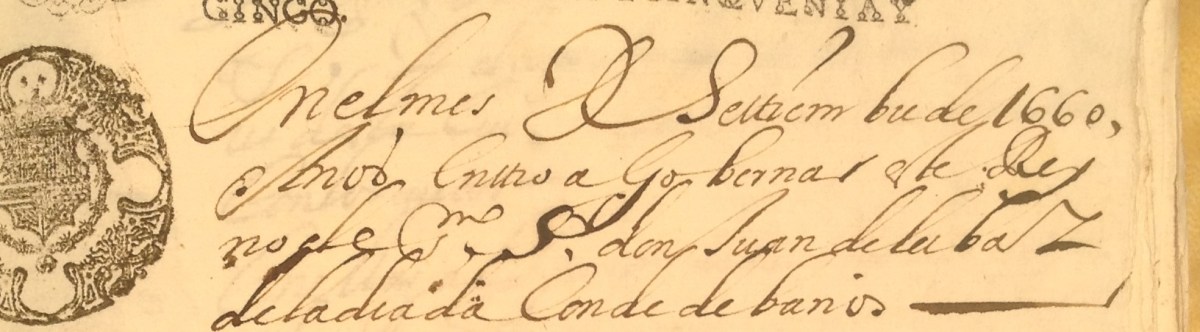 CINCO. CINQVENTAY
En el mes De Settiembre de 1660,
Años Entro a Gobernar este Rey
no el ex.mo S.r don Juan de leiba Z
de la diada Conde de baños